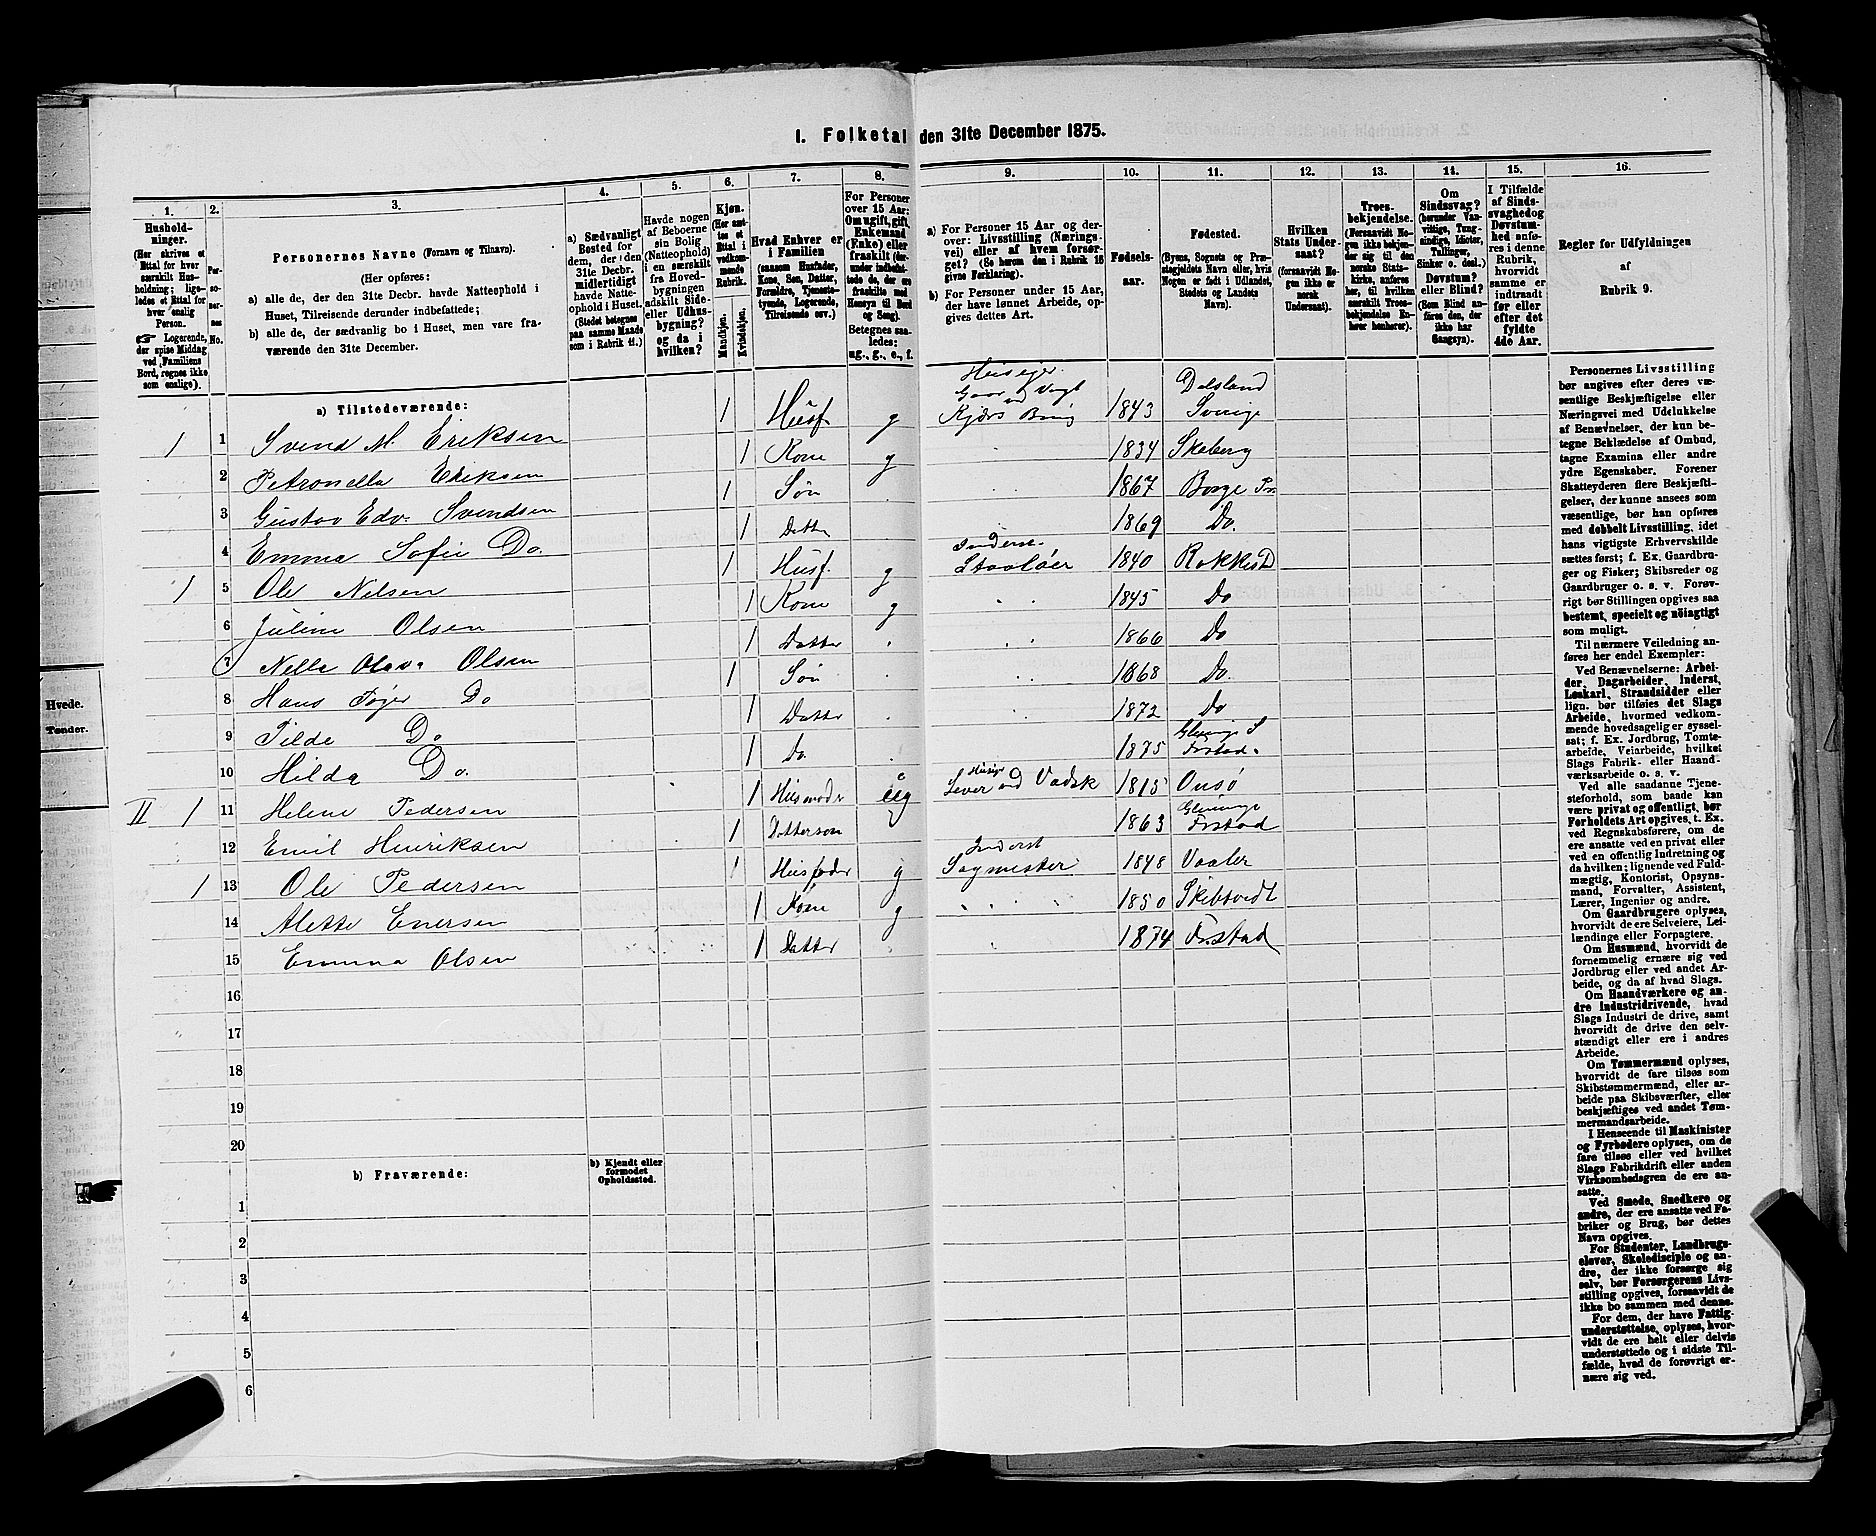 1. Folketal den 31te December 1875.
1.
2.
3.
4.
5.
6.
7.
8.
9.
10.
11.
12.
13.
14.
15.
16.
Husholdninger.
(Her skrives et Ettal for hver særskilt Husholdning; ligeledes et Ettal for hver enslig Person.
☞ Logerende, der spise Middag ved Familiens Bord, regnes ikke som enslige).
Personernes No.
Personernes Navne (Fornavn og Tilnavn).
(Her opføres:
a) alle de, der den 31te Decbr. havde Natteophold i Huset, Tilreisende derunder indbefattede;
b) alle de, der sædvanlig bo i Huset, men vare fraværende den 31te December.
a) Sædvanligt Bosted for dem, der den 31te Decbr. midlertidigt havde Natteophold i Huset.
(Stedet betegnes paa samme Maade som i Rubrik 11.)
Havde nogen af Beboerne sin Bolig (Natteophold) i en særskilt fra Hovedbygningen adskilt Side- eller Udhusbygning? og da i hvilken?
Kjøn.
(Her sættes et Ettal i vedkommende Rubrik.
Mandkjøn.
Kvindekjøn.
Hvad Enhver er i Familien
(saasom Husfader, Kone, Søn, Datter, Forældre, Tjenestetyende, Logerende, Tilreisende osv.)
For Personer over 15 Aar: Om ugift, gift, Enkemand (Enke) eller fraskilt (derunder indbefattede de, der ere fraskilte med Hensyn til Bord og Seng).
Betegnes saaledes: ug., g., e., f.
a) For Personer 15 Aar og derover: Livsstilling (Næringsvei) eller af hvem forsørget? (Se herom den i Rubrik 16 givne Forklaring).
b) For Personer under 15 Aar, der have lønnet Arbeide, opgives dettes Art.
Fødselsaar.
Fødested.
(Byens, Sognets og Præstegjeldets Navn eller, hvis Nogen er født i Udlandet, Stedets og Landets Navn).
Hvilken Stats Undersaat?
(forsaavidt Nogen ikke er norsk Undersaat).
Troesbekjendelse.
(Forsaavidt Nogen ikke bekjender sig til den norske Statskirke, anføres her, til hvilken særskilt Troesbekjendelse Enhver henhører).
Om Sindssvag? (herunder Vanvittige, Tungsindige, Idioter, Tullinger, Sinker o. desl.) Døvstum? eller Blind? (Som Blind anføres den, der ikke har Gangsyn).
I Tilfælde af Sindssvaghed og Døvstumhed anføres i denne Rubrik, hvorvidt samme er indtraadt før eller efter det fyldte 4de Aar.
Regler for Udfyldningen af Rubrik 9.
a) Tilstedeværende:
1 1 Svend M. Eriksen 1 Husf g Huseier Gaardvogt ved Kjærs Brug 1843 Dalsland Sverige
2 Petronella Eriksen 1 Kone g 1834 Skeberg
3 Gustav Edv. Svendsen 1 Søn 1867 Borge Pr.
4 Emma Sofie Do. 1 Datter 1869 Do.
1 5 Ole Nelsen 1 Husf. g Inderst 1840 Rokkest
6 Juline Olsen 1 Kone g 1845 Do
7 Nella Olava Olsen 1 Datter 1866 Do
8 Hans Do 1 Søn 1868 Do.
9 Tilde Do 1 Datter 1872 Do
10 Hilda Do. 1 Do. 1875 Glemminge S Frstad.
II 1 11 Helene Pedersen 1 Husmoder ug Huseier Lever ved Vadsk 1815 Onsø
12 Emil Henriksen 1 Dattersøn 1863 Glemminge Frstad
1 13 Ole Pedersen 1 Husfader g Inderst Sagmester 1848 Vaaler
14 Alette Enersen 1 Kone g 1850 Skibtvedt
15 Emma Olsen 1 Datter 1874 Frstad
16
17
18
19
20
b) Fraværende:
b) Kjendt eller formodet Opholdssted.
1
2
3
4
5
6
Personernes Livsstilling bør angives efter deres væsentlige Beskjæftigelse eller Næringsvei med Udelukkelse af Benævnelser, der kun betegne Beklædelse af Ombud, tagne Examina eller andre ydre Egenskaber. Forener Skatteyderen flere Beskjæftigelser, der kunne ansees som væsentlige, bør han opføres med dobbelt Livsstilling, idet hans vigtigste Erhvervskilde sættes først; f. Ex. Gaardbruger og Fisker; Skibsreder og Gaardbruger o. s. v. Forøvrigt bør Stillingen opgives saa bestemt, specielt og nøiagtigt som muligt.
Til nærmere Veiledning anføres her endel Exempler:
Ved Benævnelserne: Arbeider, Dagarbeider, Inderst, Løskarl, Strandsidder eller lign. bør tilføies det Slags Arbeide, hvormed vedkommende hovedsagelig er sysselsat; f. Ex. Jordbrug, Tomtearbeide, Veiarbeide, hvilket Slags Fabrik- eller Haandværksarbeide o. s. v.
Ved alle saadanne Tjenesteforhold, som baade kan være privat og offentligt, bør Forholdets Art opgives, t. Ex. ved Regnskabsførere, om de ere ansatte ved en privat eller ved en offentlig Indretning og da hvilken; lignende ved Fuldmægtig, Kontorist, Opsynsmand, Forvalter, Assistent, Lærer, Ingeniør og andre.
Om Gaardbrugere oplyses, hvorvidt de ere Selveiere, Leilændinge eller Forpagtere.
Om Husmænd, hvorvidt de fornemmelig ernære sig ved Jordbrug eller ved andet Arbeide, og da af hvad Slags.
Om Haandværkere og andre Industridrivende, hvad Slags Industri de drive, samt hvorvidt de drive den selvstændigt eller ere i andres Arbeide.
Om Tømmermænd oplyses, hvorvidt de fare tilsøs som Skibstømmermænd, eller arbeide paa Skibsværfter, eller beskjæftiges ved andet Tømmermandsarbeide.
I Henseende til Maskinister og Fyrbødere oplyses, om de fare tilsøs eller ved hvilket Slags Fabrikdrift eller anden Virksomhedsgren de ere ansatte.
Ved Smede, Snedkere og andre, der ere ansatte ved Fabriker og Brug, bør dettes Navn opgives.
For Studenter, Landbrugselever, Skoledisciple og andre, der ikke forsørge sig selv, bør Forsørgerens Livsstilling opgives, forsaavidt de ikke bo sammen med denne.
For dem, der have Fattigunderstøttelse, oplyses, hvorvidt de ere helt eller delvis understøttede og i sidste Tilfælde, hvad de forøvrigt ernære sig ved.
Hvede.
Tønder.